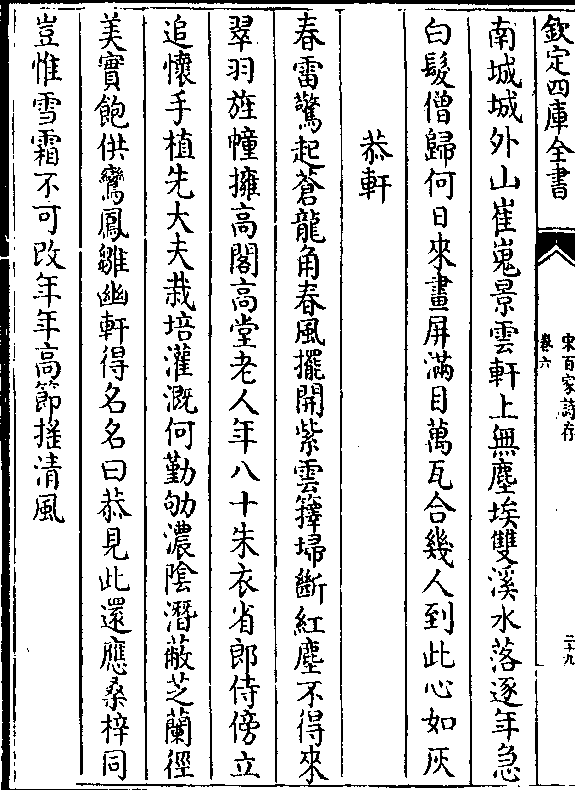 欽定四庫全書
宋百家詩存
卷六
二十九
南城城外山崔嵬景雲軒上無塵埃雙溪水落逐年急
白髮僧歸何日來畫屏滿目萬瓦合幾人到此心如灰
恭軒
春雷驚起蒼龍角春風擺開紫雲籜埽斷紅塵不得來
翠羽旌幢擁高閣高堂老人年八十朱衣省郎侍傍立
追懷手植先大夫栽培灌溉何勤劬濃陰潛蔽芝蘭徑
美實飽供鸞鳳雛幽軒得名名曰恭見此還應桑梓同
豈惟雪霜不可改年年高節搖清風